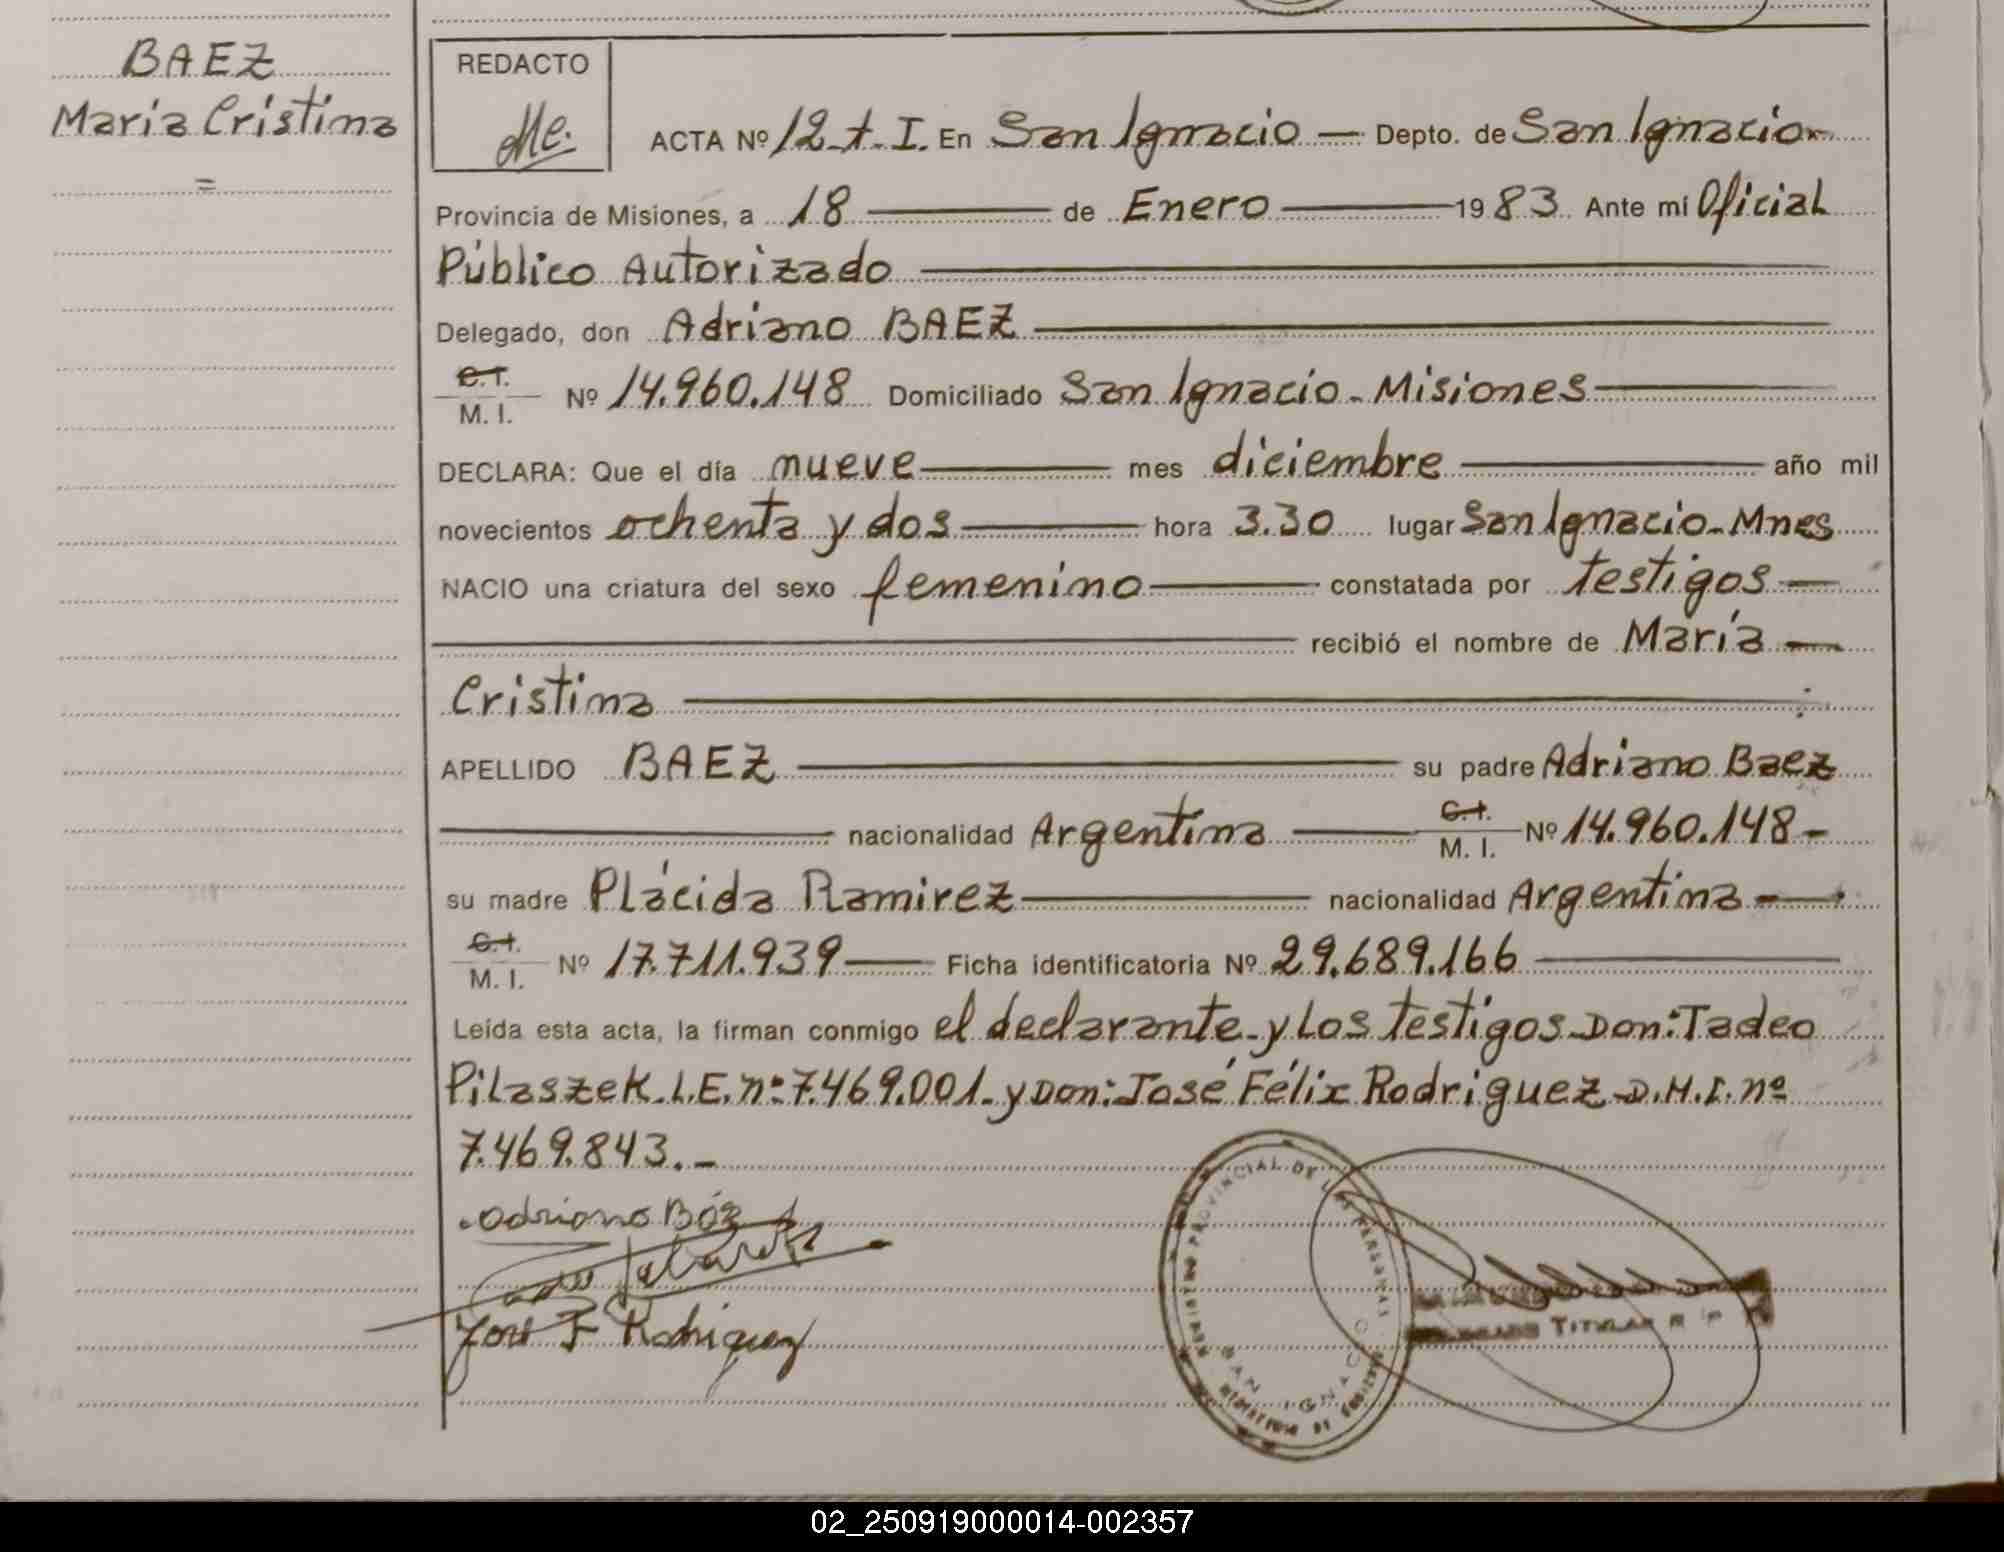 BAEZ
Maria Cristina
=
REDACTO
Me.
ACTA Nº 12-t.I. En San Ignacio — Depto. de San Ignacio
Provincia de Misiones, a 18 — de Enero — 1983 Ante mí Oficial
Público Autorizado —
Delegado, don Adriano BAEZ —
C.I.
M. I. Nº 14.960.148 Domiciliado San Ignacio - Misiones —
DECLARA: Que el día nueve — mes diciembre — año mil
novecientos ochenta y dos — hora 3.30 lugar San Ignacio - Mnes
NACIO una criatura del sexo femenino — constatada por testigos —
— recibió el nombre de María —
Cristina —
APELLIDO BAEZ — su padre Adriano Baez
— nacionalidad Argentina — C.I. M. I. Nº 14.960.148 -
su madre Plácida Ramirez — nacionalidad Argentina —
C.I.
M. I. Nº 17.711.939 — Ficha identificatoria Nº 29.689.166 —
Leída esta acta, la firman conmigo el declarante - y los testigos Don: Tadeo
Pilaszek. L.E. nº 7.469.001 - y Don: José Félix Rodriguez - D.N.I. nº
7.469.843.-
Adriano Báz
José F Rodriguez
REGISTRO PROVINCIAL DE LAS PERSONAS
SAN IGNACIO
MINISTERIO DE GOBIERNO
TITULAR R P
02_250919000014-002357